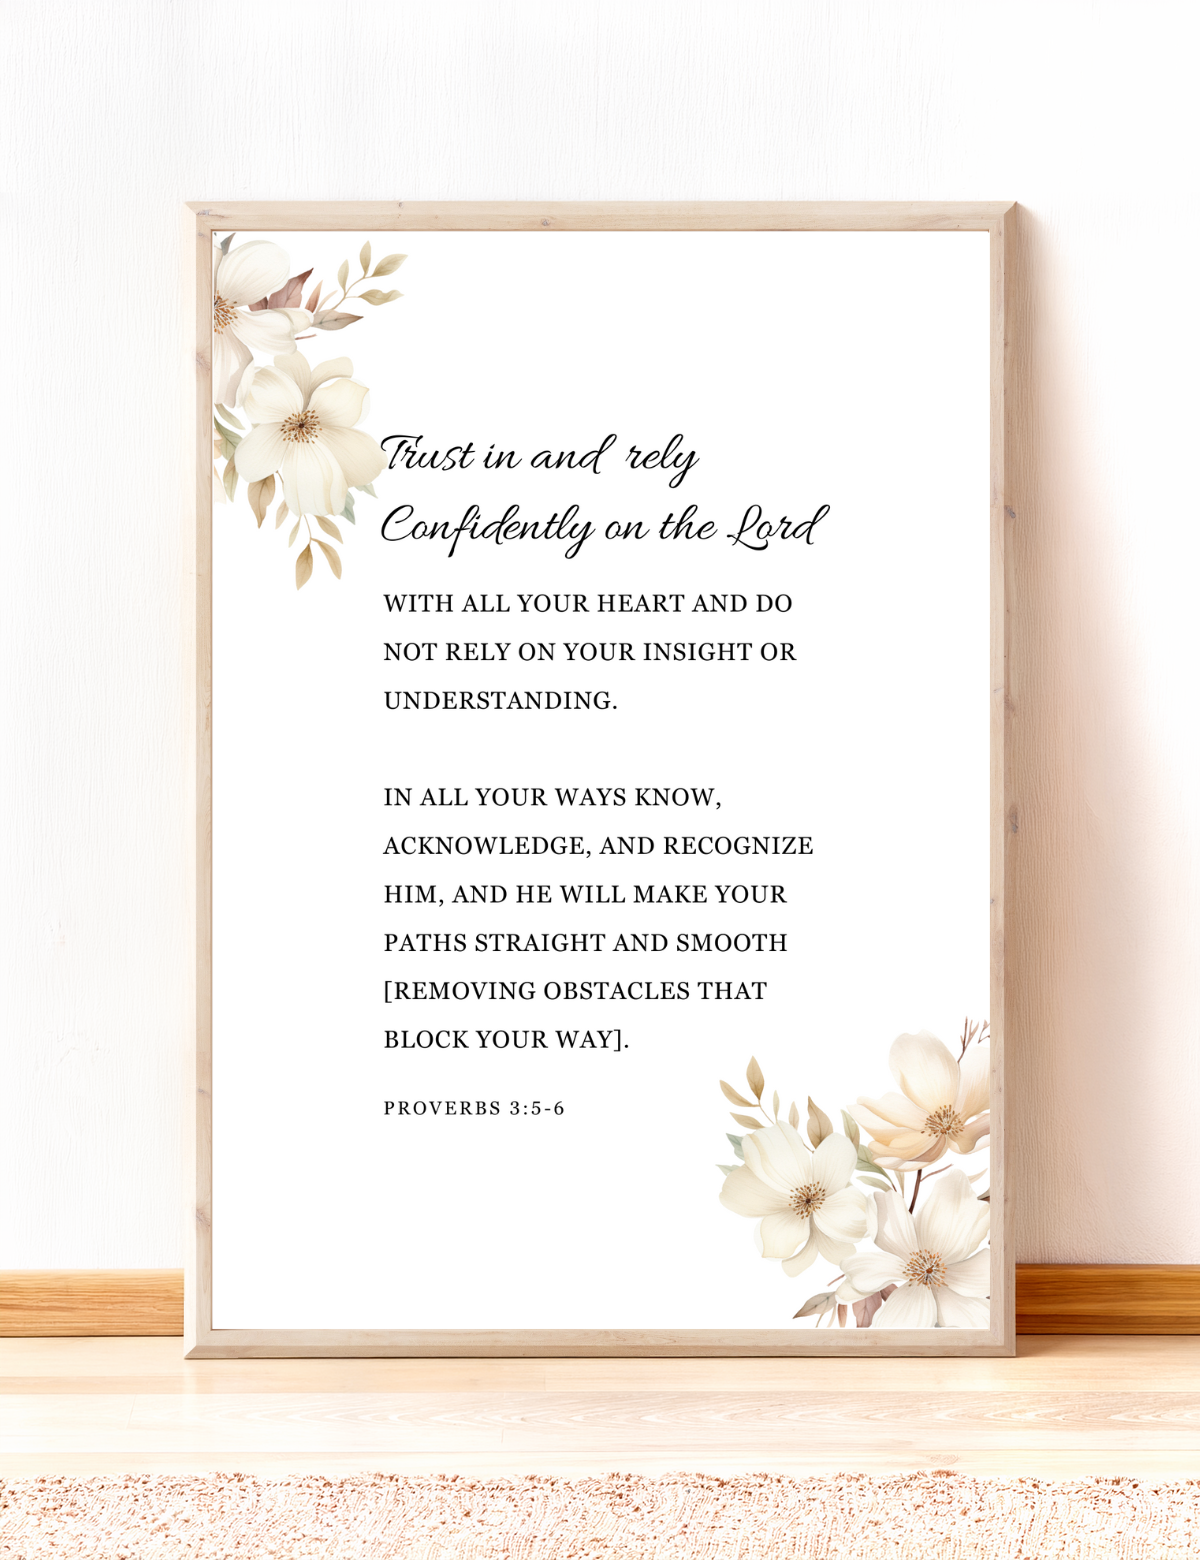 Trust in and rely
Confidently on the Lord
WITH ALL YOUR HEART AND DO
NOT RELY ON YOUR INSIGHT OR
UNDERSTANDING.
IN ALL YOUR WAYS KNOW,
ACKNOWLEDGE, AND RECOGNIZE
HIM, AND HE WILL MAKE YOUR
PATHS STRAIGHT AND SMOOTH
[REMOVING OBSTACLES THAT
BLOCK YOUR WAY].
PROVERBS 3:5-6